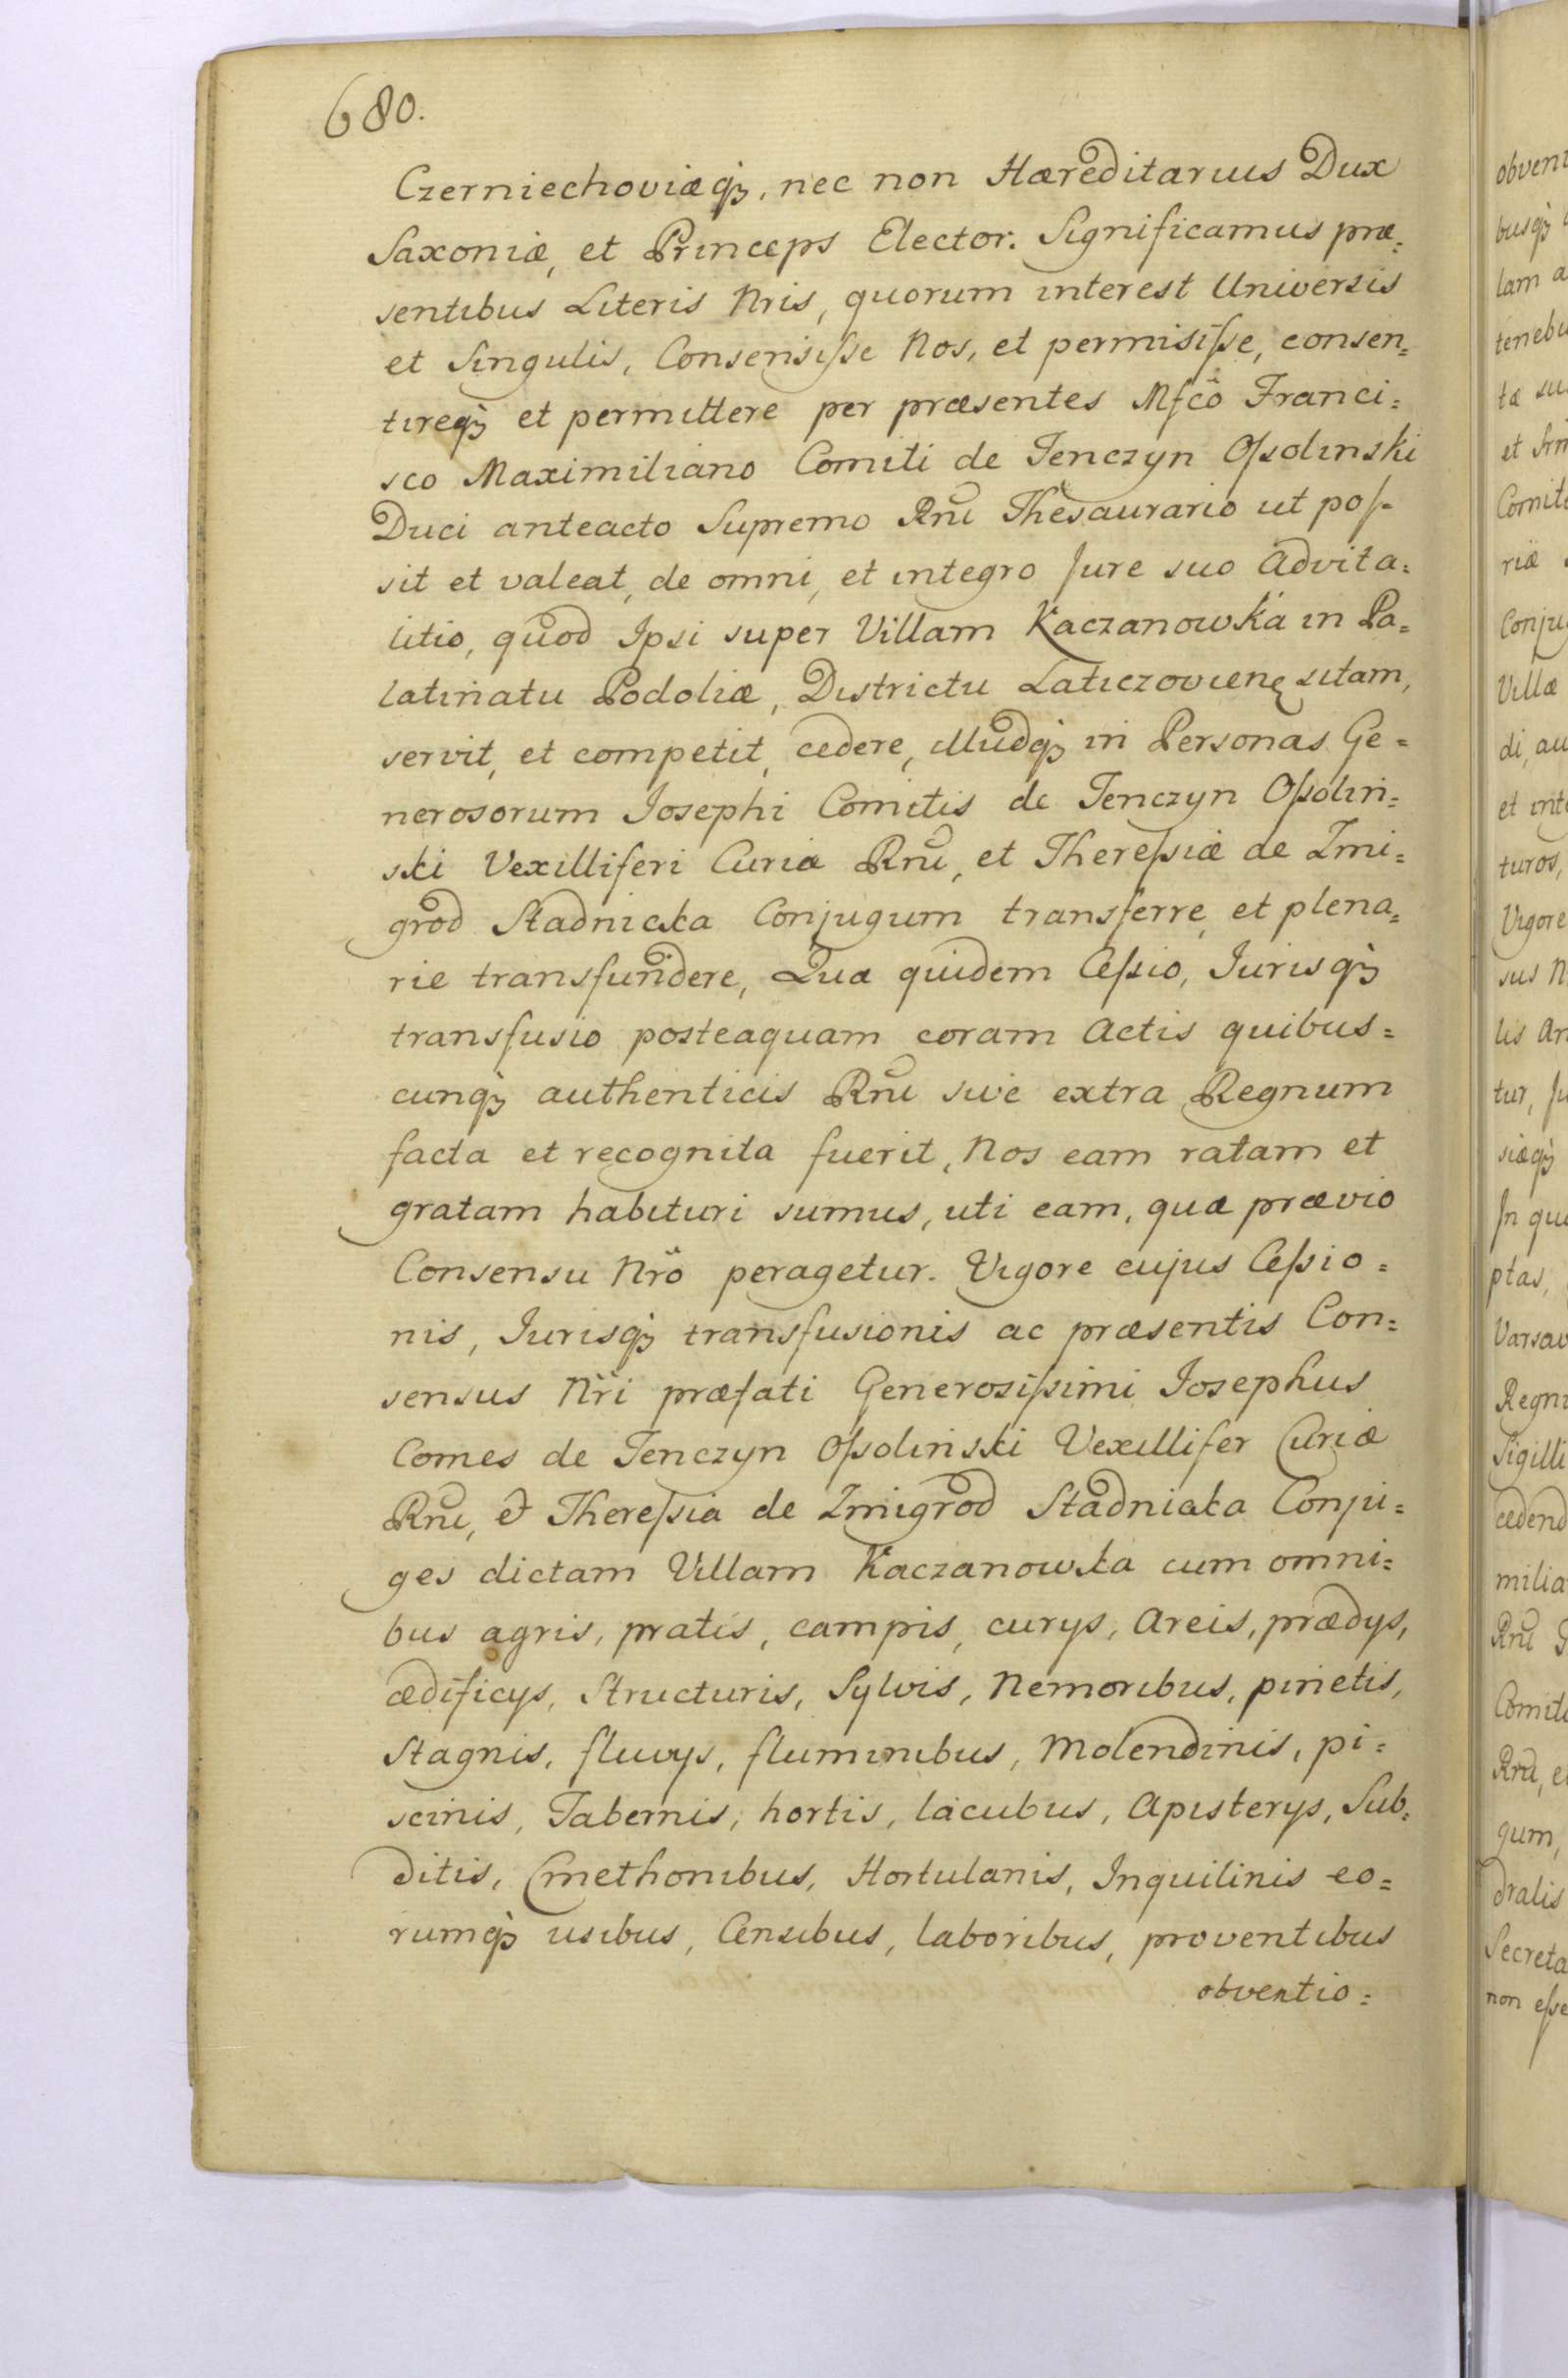 680.
Czerniechoviæq́ꝫ, nec non Hæreditarius Dux
Saxoniæ, et Princeps Elector. Significamus præ=
sentibus Literis Nris, quorum interest Universis
et Singulis, Consensiſse Nos, et permisiſse, consen=
tireq́ꝫ et permittere per præsentes Mfcô Franci=
sco Maximiliano Comiti de Tenczyn Oſsolinski
Duci anteacto Supremo Rnĩ Thesaurario ut poſ=
sit et valeat, de omni, et integro Jure suo Advita=
litio, quod Ipsi super Villam Kaczanowká in Pa=
latinatu Podoliæ, Districtu Laticzovienę sitam,
servit, et competit, cedere, illudq́ꝫ in Personas Ge=
nerosorum Josephi Comitis de Tenczyn Oſsolin=
ski Vexilliferi Curiæ Rnĩ, et Thereſsiæ de Zmi=
grod Stadnicka Conjugum transferre, et plena=
rie transfundere, Quæ quidem Ceſsio, Jurisq́ꝫ
transfusio posteaquam coram Actis quibus=
cunq́ꝫ authenticis Rnĩ sive extra Regnum
facta et recognita fuerit, Nos eam ratam et
gratam habituri sumus, uti eam, quæ prævio
Consensu Nrõ peragetur. Vigore cujus Ceſsio=
nis, Jurisq́ꝫ transfusionis ac præsentis Con=
sensus Nr̃i præfati Generosiſsimi Josephus
Comes de Tenczyn Oſsolinski Vexillifer Curiæ
Rnĩ, & Thereſsia de Zmigrod Stadnicka Conju=
ges dictam Villam Kaczanowka cum omni=
bus agris, pratis, campis, curys, Areis, prædys,
ædificys, Structuris, Sylvis, Nemoribus, pinetis,
Stagnis, fluvys, fluminibus, Molendinis, pi=
scinis, Tabernis, hortis, lacubus, Apisterys, Sub=
ditis, Cmethonibus, Hortulanis, Inquilinis eo=
rumq́ꝫ usibus, Censibus, laboribus, proventibus
obventio=